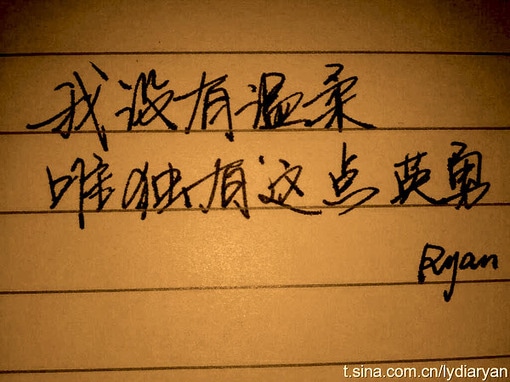 我没有温柔
唯独有这点英勇
Ryan
t.sina.com.cn/lydiaryan